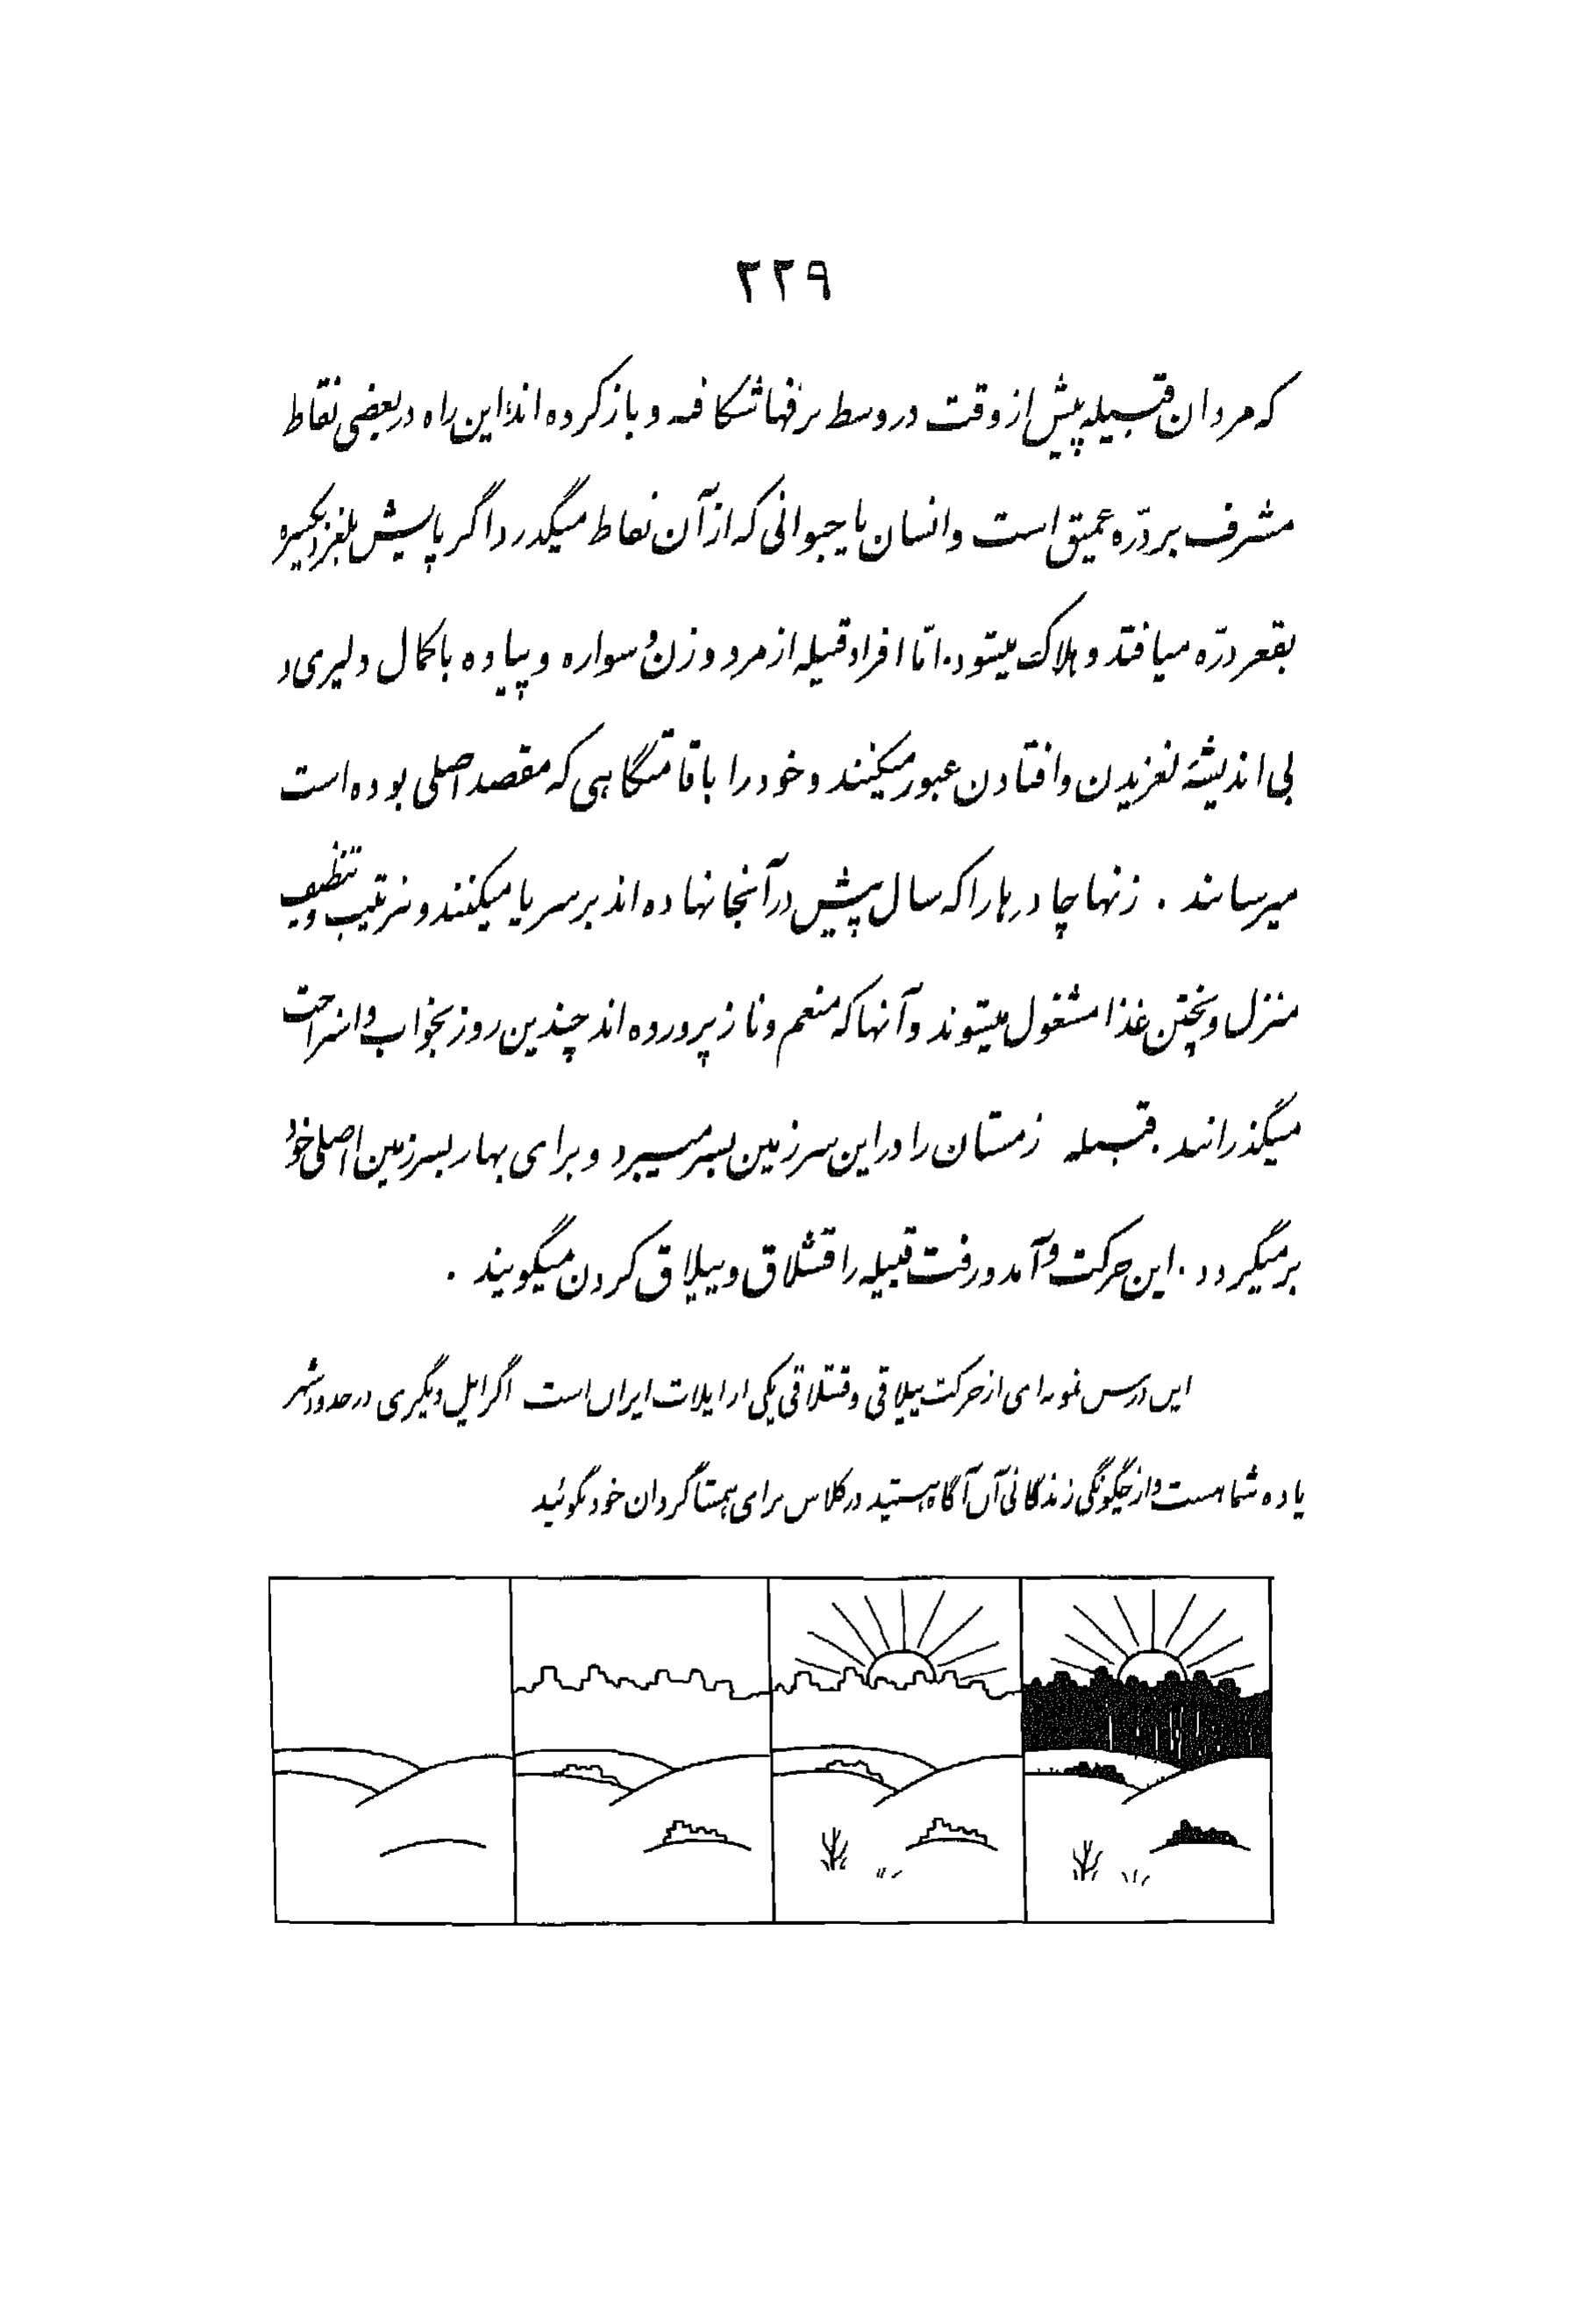 ۲۲۹
که مردان قبیله پیش از وقت در وسط برفها شکافته و باز کرده اند این راه در بعضی نقاط
مشرف بر درّه عمیق است و انسان یا حیوانی که از آن نقاط میگذرد اگر پایش بلغزد یکسره
بقعر درّه میافتد و هلاک میشود. امّا افراد قبیله از مرد و زن و سواره و پیاده با کمال دلیری و
بی اندیشهٔ لغزیدن و افتادن عبور میکنند و خود را باقامتگاهی که مقصد اصلی بوده است
میرسانند . زنها چادرها را که سال پیش در آنجا نهاده اند بر سر پا میکنند و بترتیب و تنظیف
منزل و پختن غذا مشغول میشوند و آنها که منعم و ناز پرورده اند چندین روز بخواب و استراحت
میگذرانند. قبیله زمستان را در این سرزمین بسر میبرد و برای بهار بسرزمین اصلی خود
برمیگردد . این حرکت و آمد و رفت قبیله را قشلاق و ییلاق کردن میگویند .
این درس نمونه ای از حرکت ییلاقی و قشلاقی یکی از ایلات ایران است اگر ایل دیگری در حدود شهر
یا ده شما هست و از چگونگی زندگانی آن آگاه هستید در کلاس برای همشاگردان خود بگوئید